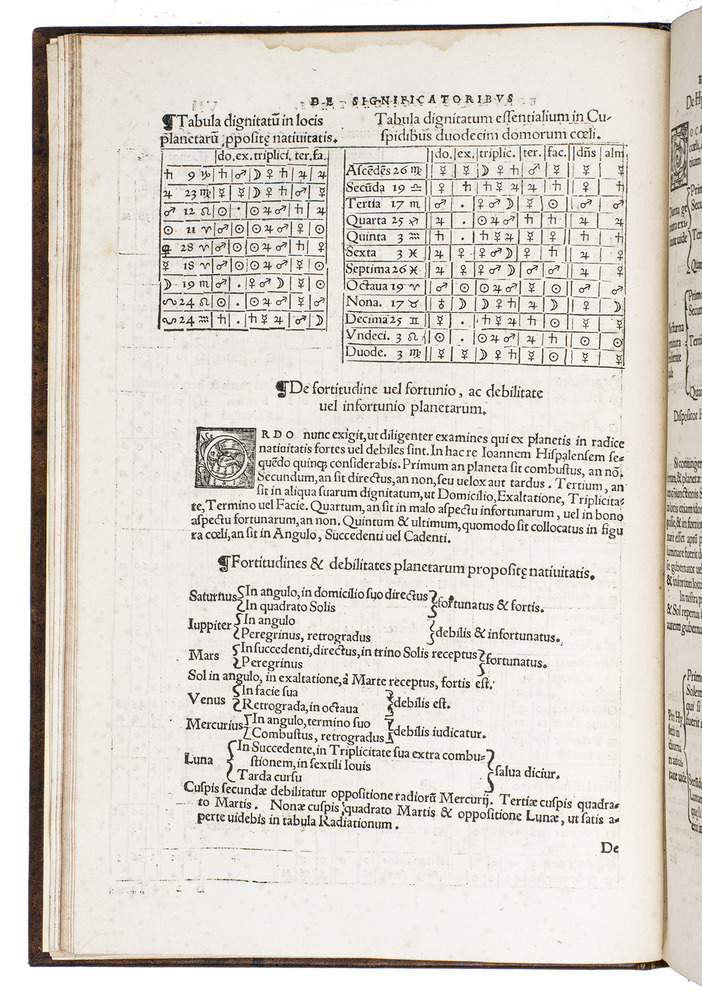 DE SIGNIFICATORIBVS
¶Tabula dignitatū in locis
planetarū ꝓpositę natiuitatis.
do. ex. triplici. ter. fa.
♄ 9 ♑ ♄ ♂ ☽ ♀ ♄ ♃ ♃
♃ 23 ♍ ☿ ☿ ☽ ♀ ♄ ♂ ☿
♂ 12 ♌ ☉ . ☉ ♃ ♂ ♄ ♃
☉ 11 ♈ ♂ ☉ ☉ ♃ ♂ ♀ ☉
♀ 28 ♈ ♂ ☉ ☉ ♃ ♂ ♄ ♀
☿ 18 ♈ ♂ ☉ ☉ ♃ ♂ ☿ ☉
☽ 19 ♏ ♂ . ♀ ♂ ☽ ☿ ☉
24 ♌ ☉ . ☉ ♃ ♂ ☿ ♂
24 ♒ ♄ . ♄ ☿ ♃ ♂ ☽
Tabula dignitatum essentialium in Cu-
spidibus duodecim domorum cœli.
do. ex. triplic. ter. fac. dn̄s alm
Ascēdēs 26 ♍ ☿ ☿ ☽ ♀ ♄ ♂ ☿ ☿ ☿
Secūda 19 ♎ ♀ ♄ ♄ ☿ ♃ ♃ ♄ ♀ ♄
Tertia 17 ♏ ♂ . ♀ ♂ ☽ ☿ ☉ ♂ ♂
Quarta 25 ♐ ♃ . ☉ ♃ ♂ ♄ ♄ ♃ ♃
Quinta 3 ♒ ♄ . ♄ ☿ ♃ ☿ ♀ ♄ ♄
Sexta 3 ♓ ♃ ♀ ♀ ♂ ☽ ♀ ♄ ♃ ♀
Septima 26 ♓ ♃ ♀ ♀ ♂ ☽ ♂ ♂ ♃ ♀
Octaua 19 ♈ ♂ ☉ ☉ ♃ ♂ ☿ ☉ ♂ ♂
Nona. 17 ♉ ☽ ☽ ♀ ♄ ♃ ☽ ♀ ☽
Decima 25 ♊ ☿ . ♄ ☿ ♃ ♄ ☉ ☿ ☿
Vndeci. 3 ♌ ☉ . ☉ ♃ ♂ ♃ ♄ ☉ ☉
Duode. 3 ♍ ☿ ☿ ☽ ♀ ♄ ☿ ☉ ☿ ☿
¶De fortitudine uel fortunio, ac debilitate
uel infortunio planetarum.
ORDO nunc exigit, ut diligenter examines qui ex planetis in radice
natiuitatis fortes uel debiles sint. In hac re Ioannem Hispalensem se-
quēdo quinq; considerabis. Primum an planeta sit combustus, an nō.
Secundum, an sit directus, an non, seu uelox aut tardus. Tertium, an
sit in aliqua suarum dignitatum, ut Domicilio, Exaltatione, Triplicita-
te, Termino uel Facie. Quartum, an sit in malo aspectu infortunarum, uel in bono
aspectu fortunarum, an non. Quintum & ultimum, quomodo sit collocatus in figu
ra cœli, an sit in Angulo, Succedenti uel Cadenti.
¶Fortitudines & debilitates planetarum propositę natiuitatis.
Saturnus { In angulo, in domicilio suo directus
In quadrato Solis } fortunatus & fortis.
Iuppiter { In angulo
Peregrinus, retrogradus } debilis & infortunatus.
Mars { In succedenti, directus, in trino Solis receptus
Peregrinus } fortunatus.
Sol in angulo, in exaltatione, à Marte receptus, fortis est.
Venus { In facie sua
Retrograda, in octaua } debilis est.
Mercurius { In angulo, termino suo
Combustus, retrogradus } debilis iudicatur.
Luna { In Succedente, in Triplicitate sua extra combu-
stionem, in sextili Iouis
Tarda cursu } salua dicitur.
Cuspis secundæ debilitatur oppositione radiorū Mercurij. Tertiæ cuspis quadra-
to Martis. Nonæ cuspis quadrato Martis & oppositione Lunæ, ut satis a-
perte uidebis in tabula Radiationum.
De